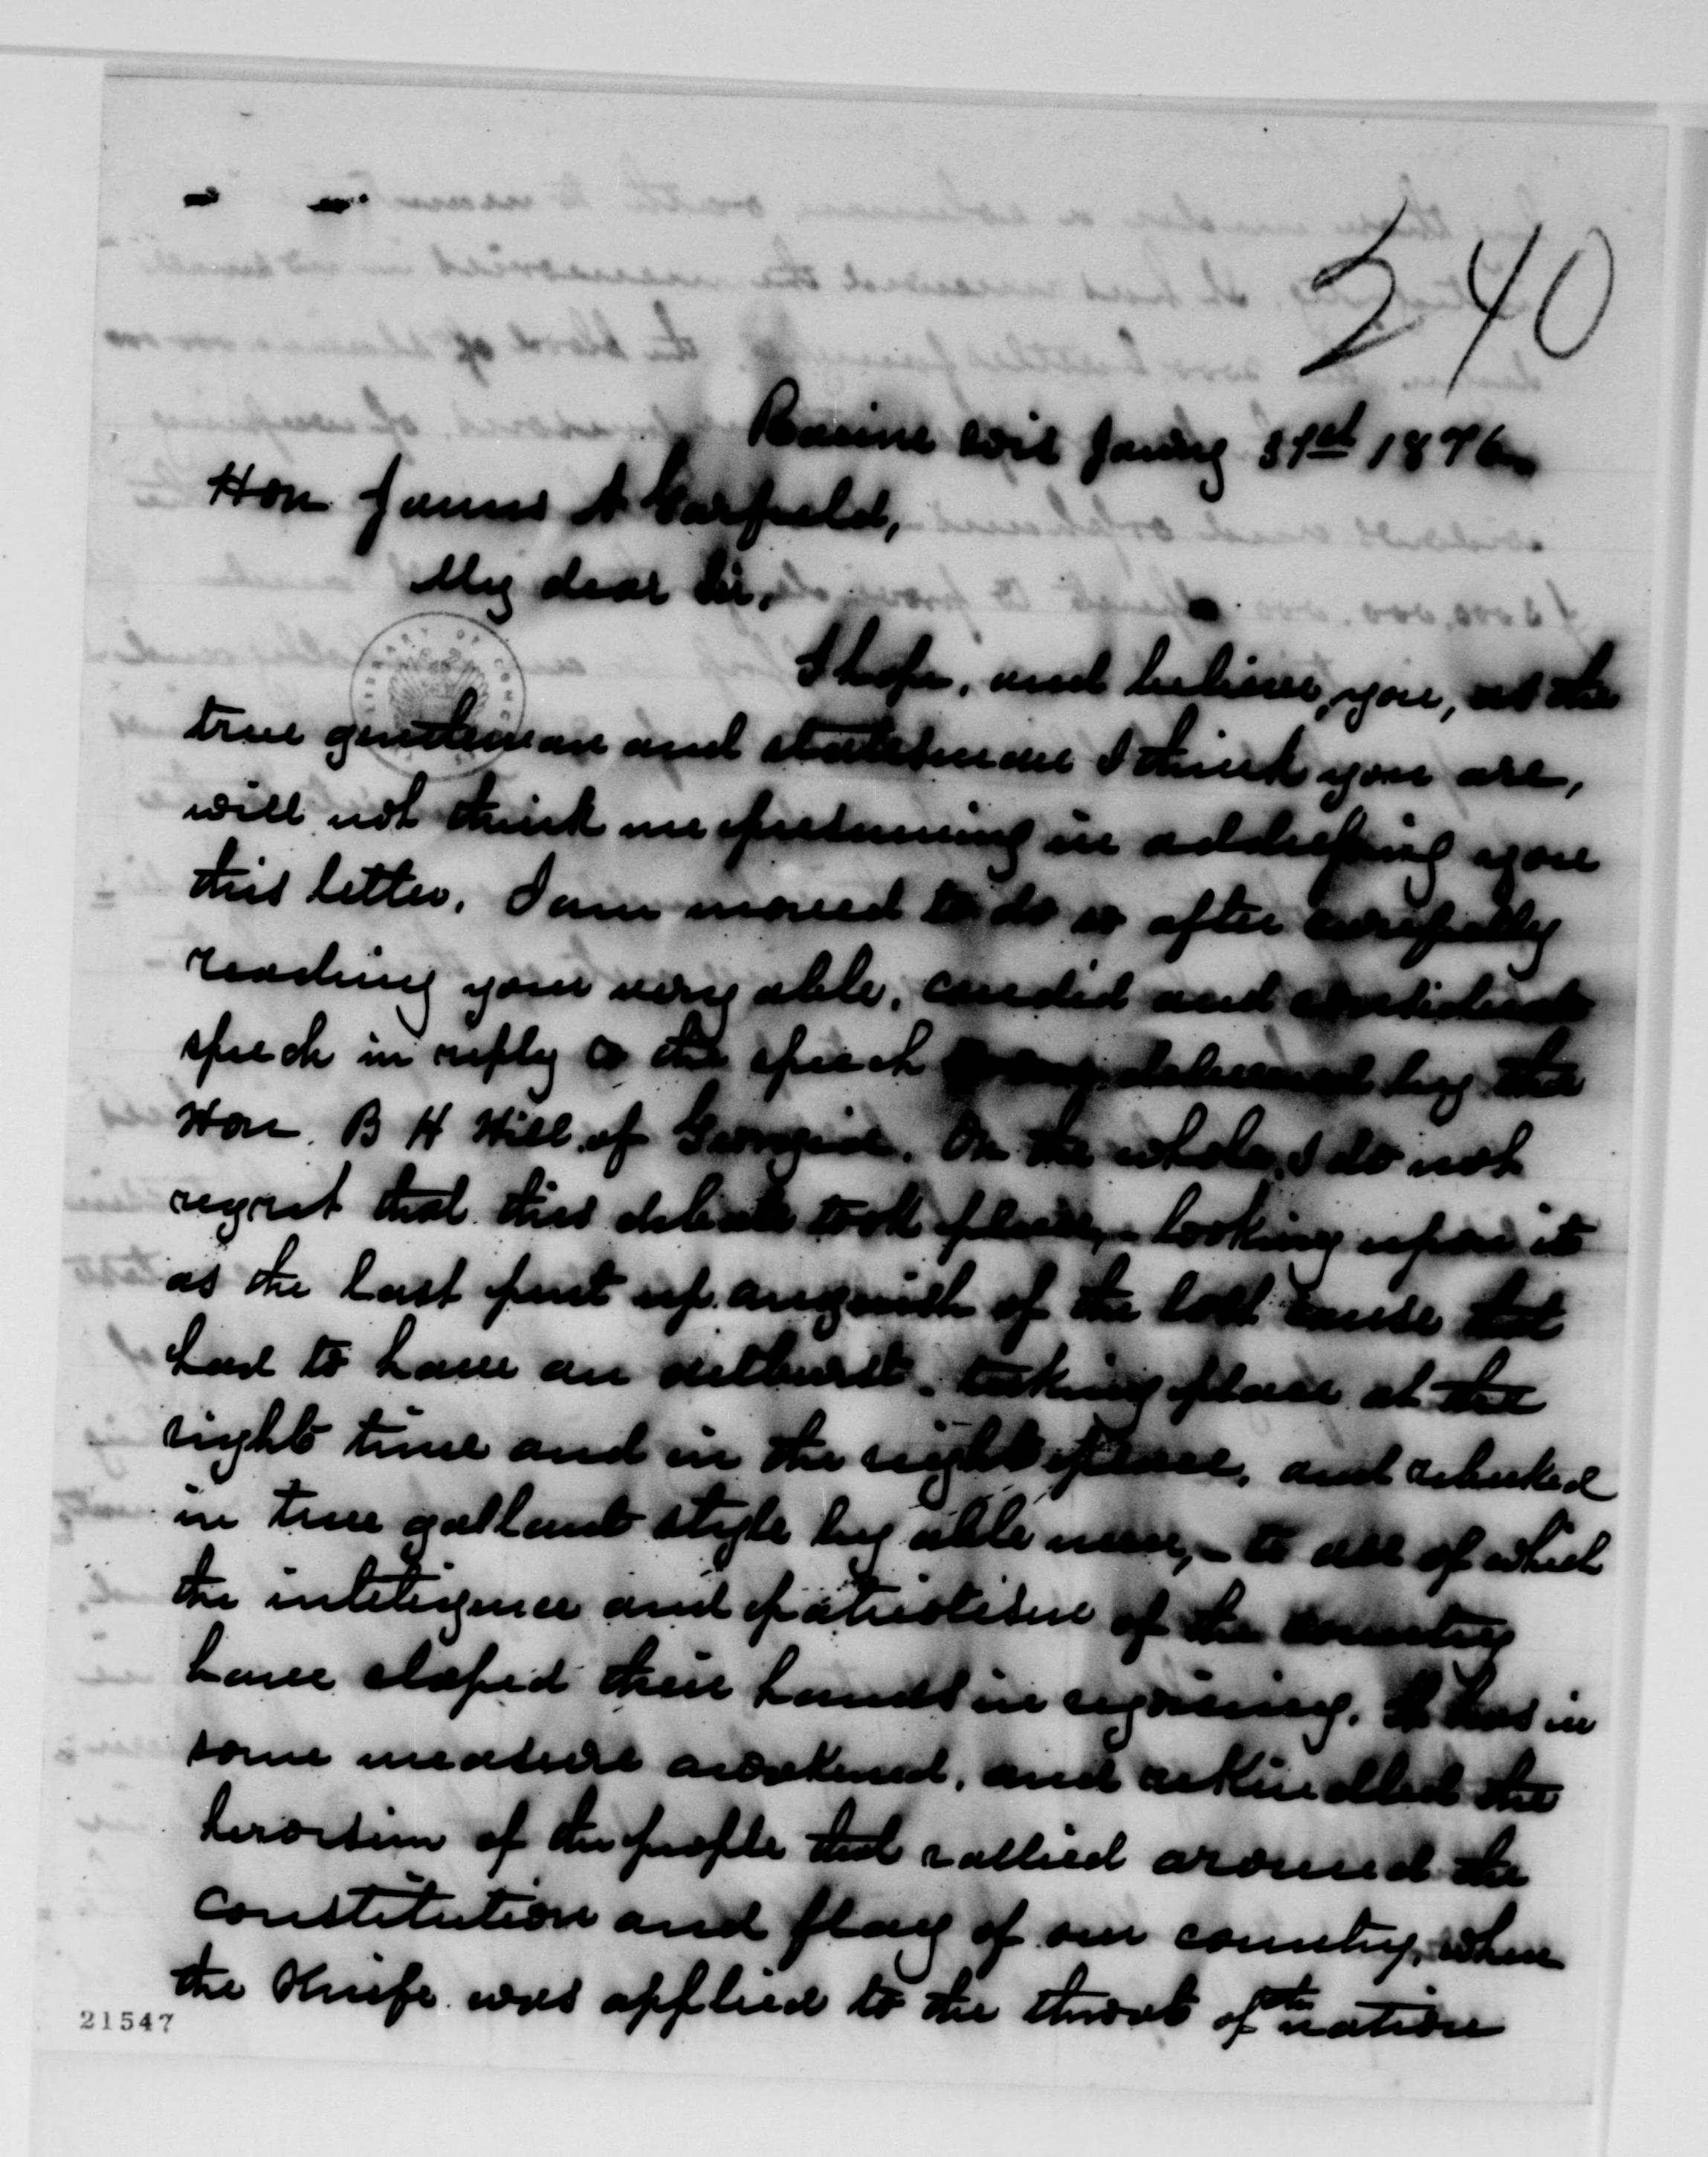 240
Racine Wis Janry 31st 1876
Hon James A Garfield,
My dear Sir,
I hope, and believe, you, as the
true gentleman and statesman I think you are,
will not think me presuming in addressing you
this letter. I am moved to do so after carefully
reading your very able, candid and
speech in reply to the speech delivered by the
Hon. B H Hill of Georgia. On the whole, I do not
regret that this debate took place, - looking upon it
as the last pent up anguish of the lost cause that
had to have an outburst, taking place at the
right time and in the right place, and rebuked
in true gallant style by able men, - to all of which
the inteligence and patriotism of the country
have claped their hands in rejoising. It has in
some measure awakened, and rekindled the
heroism of the people that rallied around the
Constitution and flag of our country, when
the Knife was applied to the throat of the nation
LIBRARY OF CONGRESS
21547